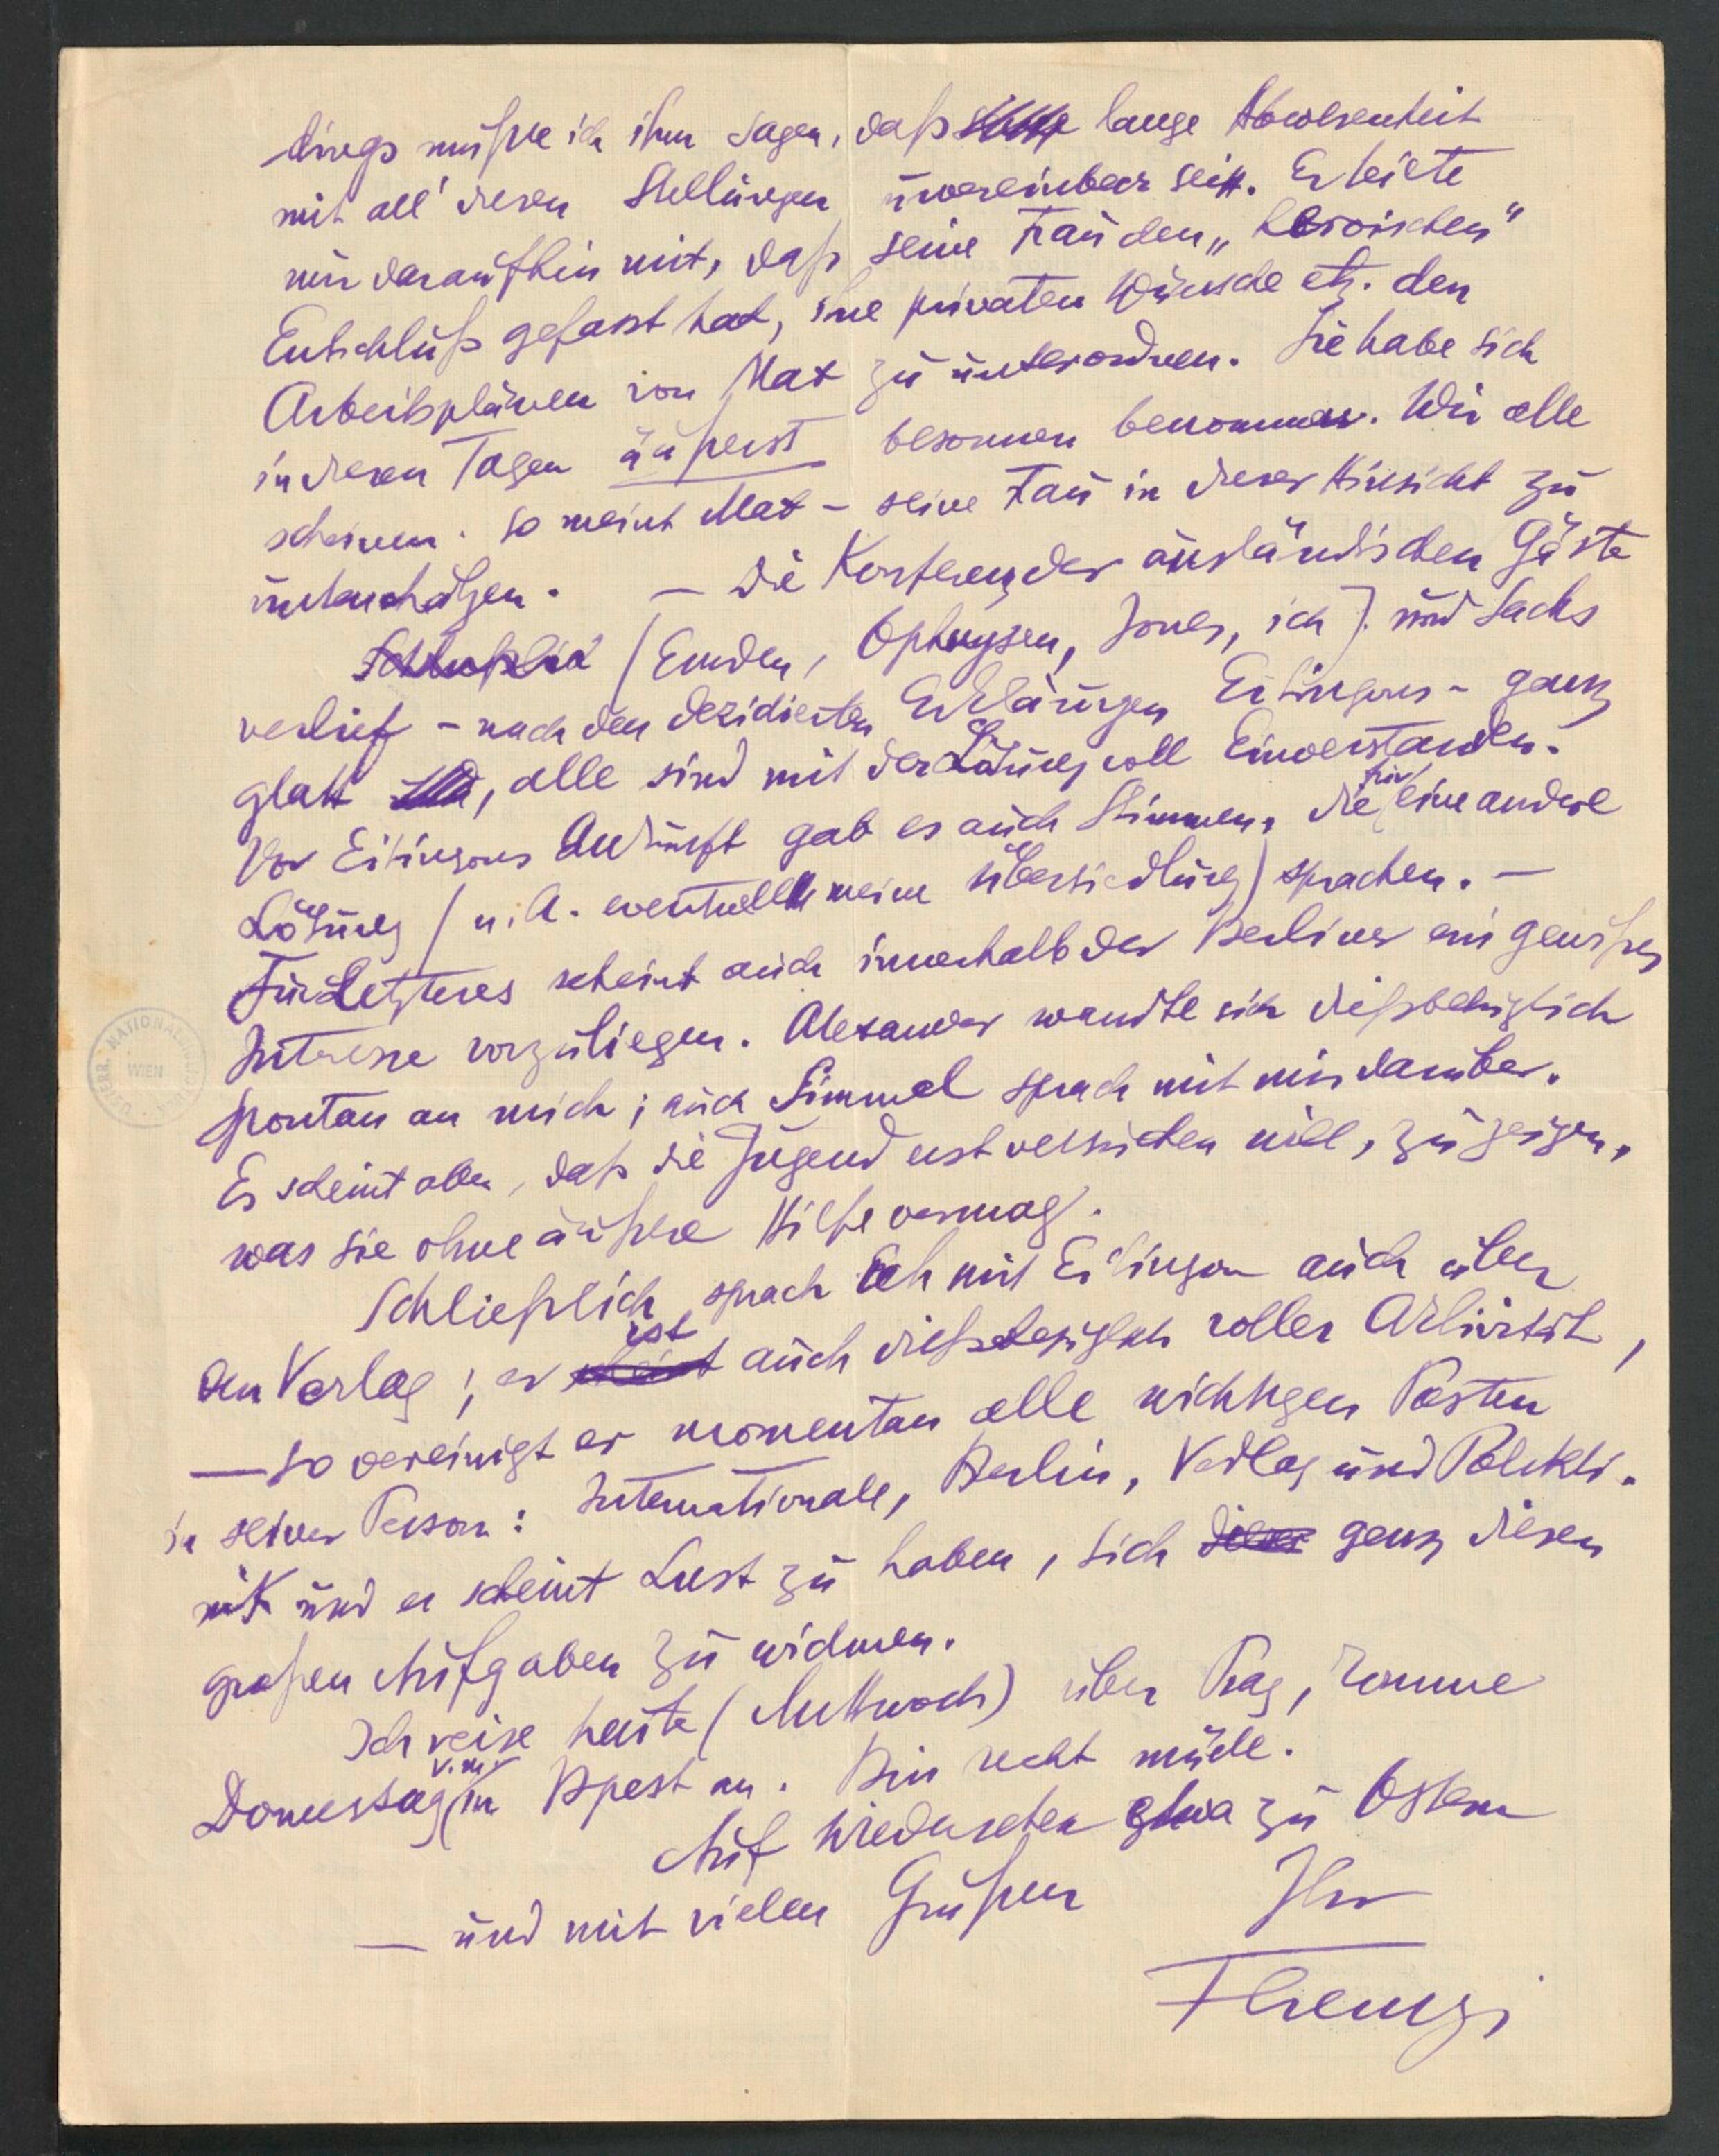 dings mußte ich ihm sagen, daß lange Abwesenheit
mit all' diesen Stellungen unvereinbar sei. Er teilte
mir daraufhin mit, daß seine Frau den „heroischen"
Entschluß gefasst hat, ihre privaten Wünsche etz. den
Arbeitsplänen von Max zu unterordnen. Sie habe sich
in diesen Tagen äußerst besonnen benommen. Wir alle
scheinen. so meint Max – seine Frau in dieser Hinsicht zu
unterschätzen. — Die Konferenz der ausländischen Gäste
(Emden, Ophuysen, Jones, ich) und Sachs
verlief – nach den dezidierten Erklärungen Eitingons – ganz
glatt, alle sind mit der Lösung voll Einverstanden.
Vor Eitingons Ankunft gab es auch Stimmen, die für eine andere
Lösung (u. A. eventuell meine Übersiedlung) sprachen. —
Für Letzteres scheint auch innerhalb der Berliner ein gewißes
Interesse vorzuliegen. Alexander wandte sich dießbezüglich
spontan an mich; auch Simmel sprach mit mir darüber.
Es scheint aber, daß die Jugend erst versuchen will, zu zeigen,
was sie ohne äußere Hilfe vermag.
Schließlich sprach ich mit Eitingon auch über
den Verlag; er ist auch dießbezüglich voller Aktivität,
— so vereinigt er momentan alle wichtigen Posten
in seiner Person: Internationale, Berlin, Verlag und Polikli-
nik und er scheint Lust zu haben, sich ganz diesen
großen Aufgaben zu widmen.
Ich reise heute (Mittwoch) über Prag, komme
Donnerstag v.m. in Bpest an. Bin recht müde.
Auf Wiedersehen etwa zu Ostern
— und mit vielen Grüßen Ihr
Ferenczi
ÖSTERR. NATIONALBIBLIOTHEK
WIEN